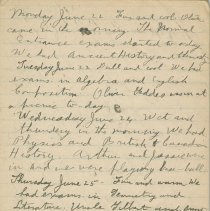 Monday June 22 Fine and cool.
came in the morning. The Normal
Entrance exams started to-day.
We had Ancient History and
Tuesday June 23 Dull and cool. We had
exams in Algebra and English
Composition. Oliver was at
a picnic to-day.
Wednesday June 24. Wet and
thundery in the morning. We had
Physics and British & Canadian
History. Arthur
in and we were playing base-ball
Thursday June 25 - Fine and warm. We
had exams in Geometry and
Literature. Uncle Gilbert and Aunt